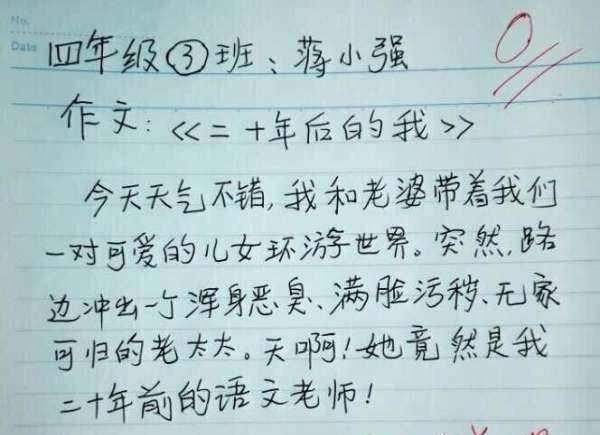 No.
Date
四年级③班：蒋小强
0
作文：<<二十年后的我>>
今天天气不错，我和老婆带着我们
一对可爱的儿女环游世界。突然，路
边冲出一个浑身恶臭、满脸污秽、无家
可归的老太太。天啊！她竟然是我
二十年前的语文老师！